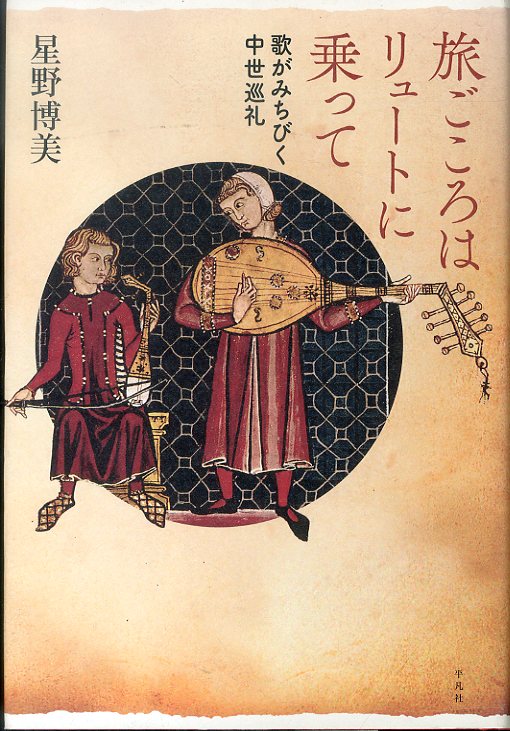 旅ごころは
リュートに
乗って
歌がみちびく
中世巡礼
星野博美
平凡社